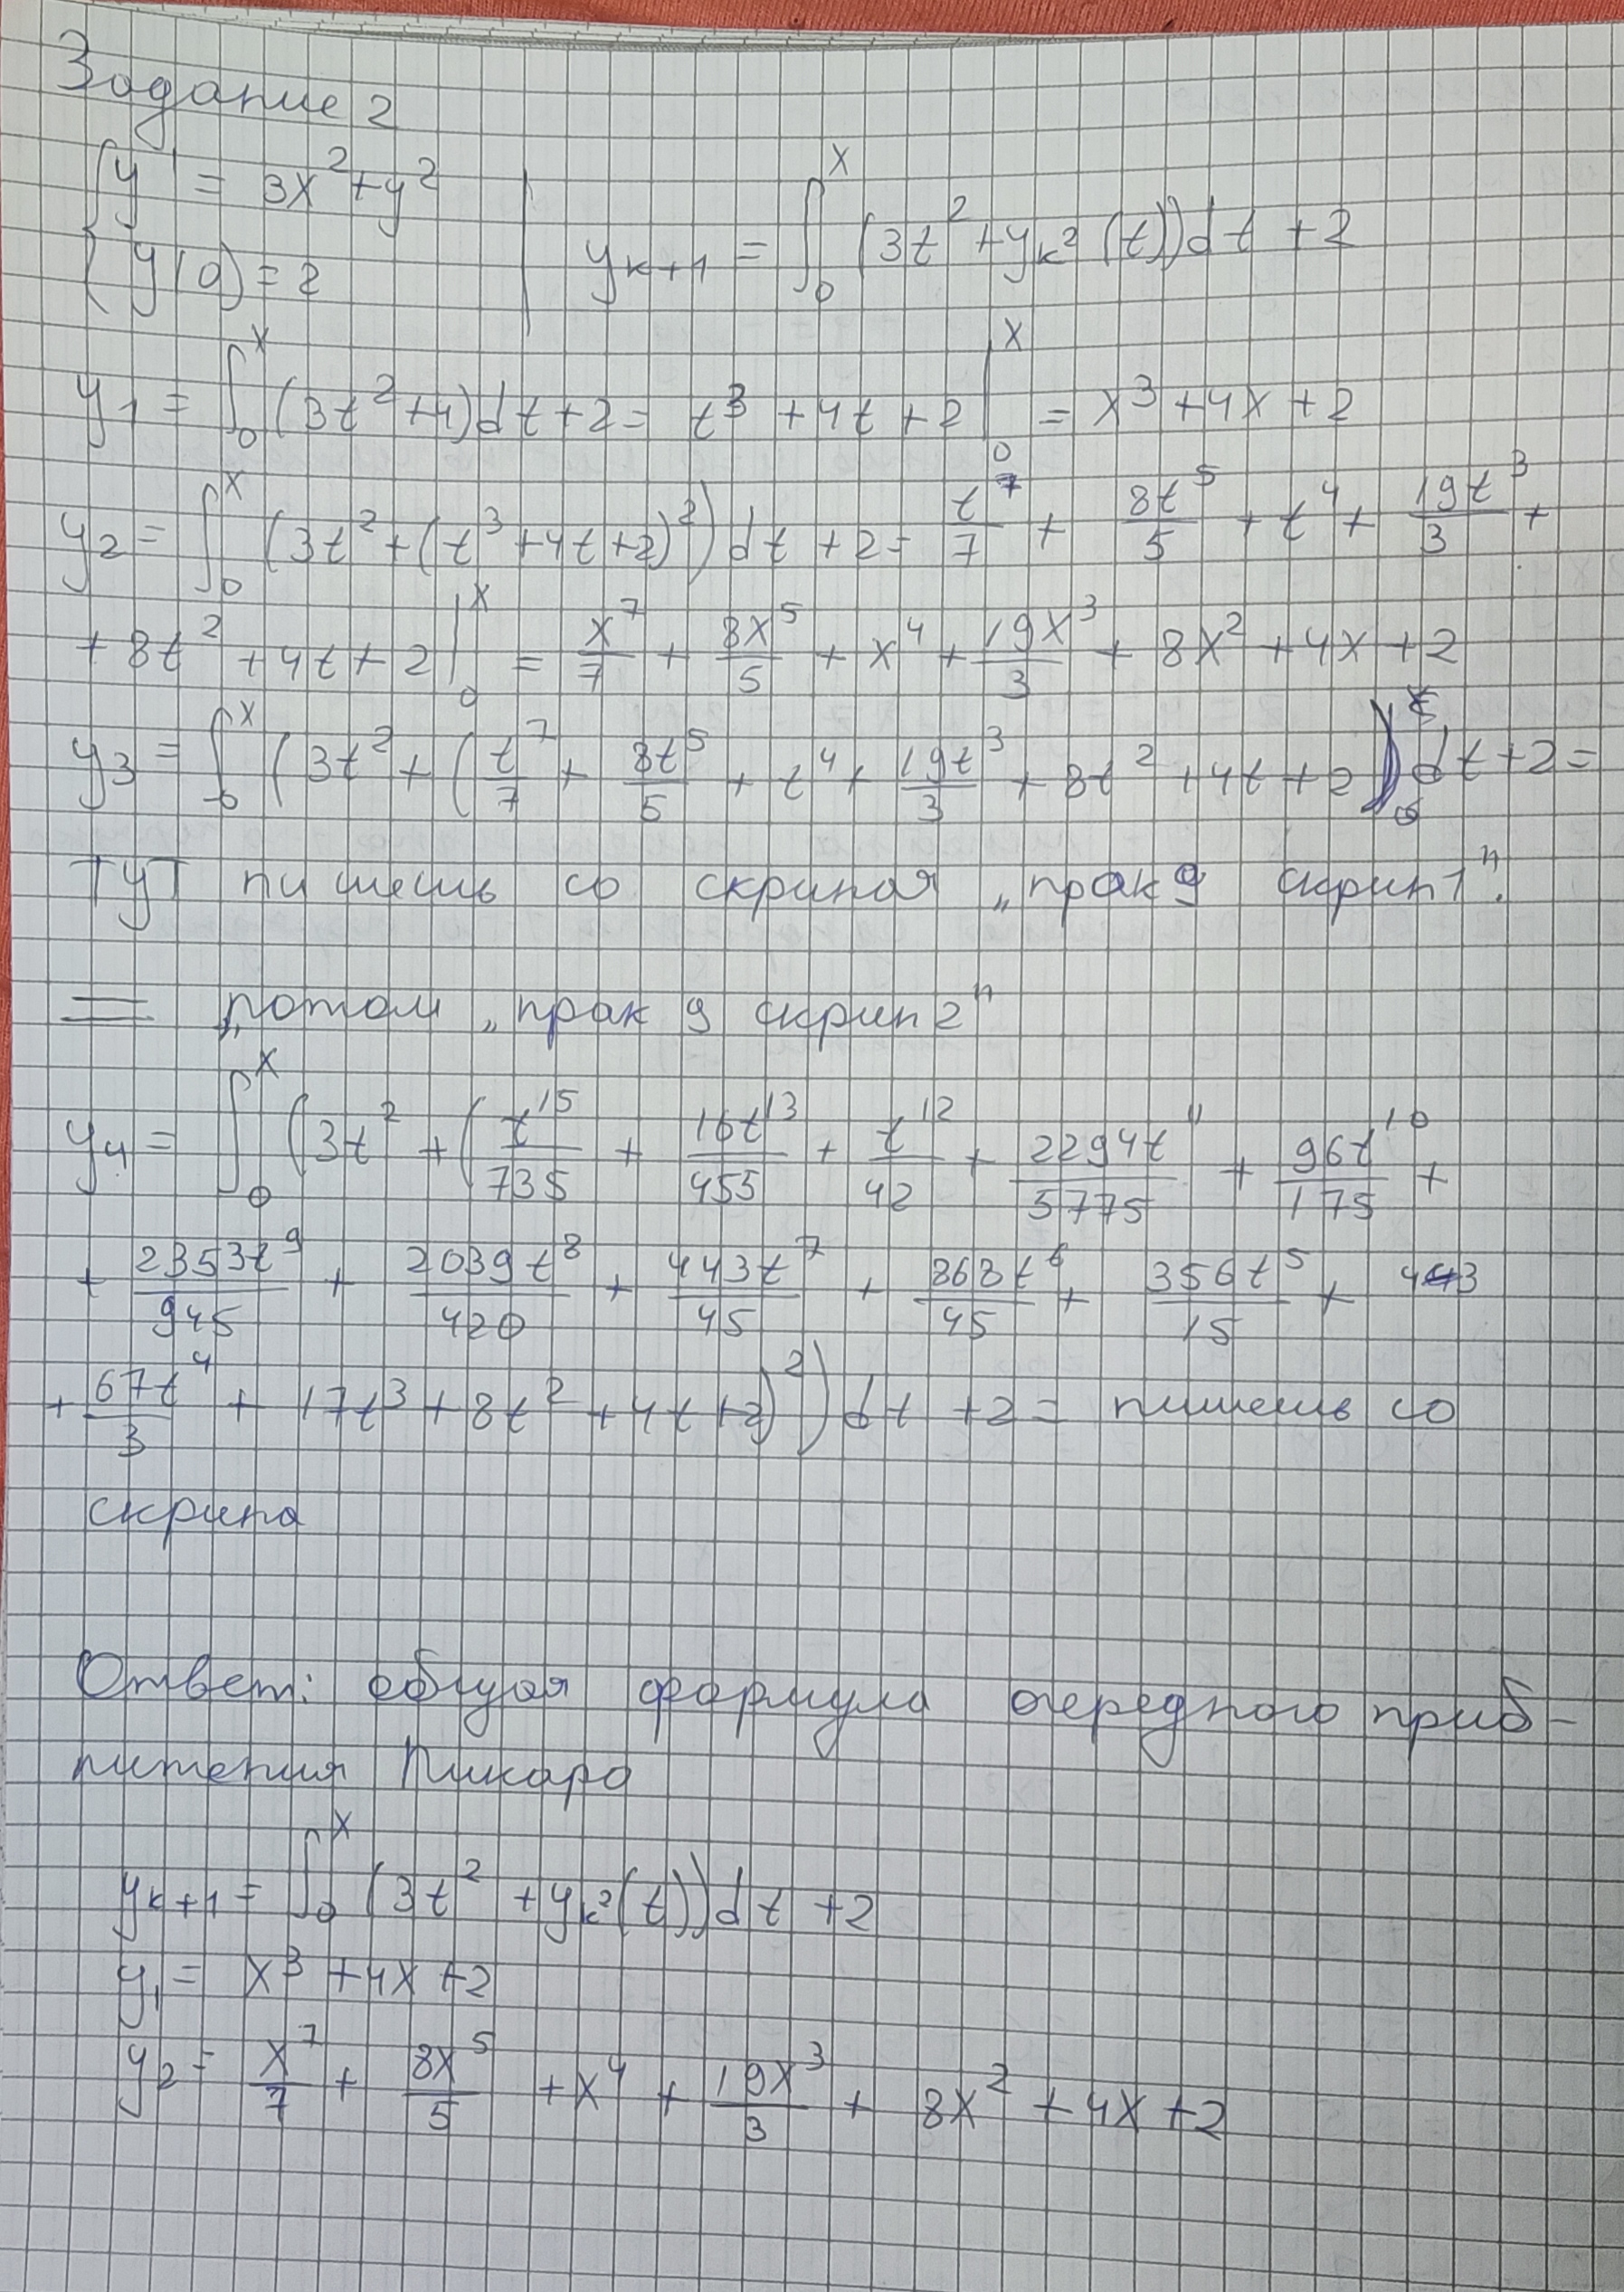 Задание 2
{ y' = 3x² + y²
{ y(0) = 2 | yₖ₊₁ = ∫₀ˣ (3t² + yₖ²(t))dt + 2
y₁ = ∫₀ˣ (3t² + 4)dt + 2 = t³ + 4t + 2 |₀ˣ = x³ + 4x + 2
y₂ = ∫₀ˣ (3t² + (t³ + 4t + 2)²)dt + 2 = t⁷/7 + 8t⁵/5 + t⁴ + 19t³/3 +
+ 8t² + 4t + 2 |₀ˣ = x⁷/7 + 8x⁵/5 + x⁴ + 19x³/3 + 8x² + 4x + 2
y₃ = ∫₀ˣ (3t² + (t⁷/7 + 8t⁵/5 + t⁴ + 19t³/3 + 8t² + 4t + 2) dt + 2 =
Тут пишешь со скрина „прак 9 скрин 1".
= „потом „прак 9 скрин 2"
y₄ = ∫₀ˣ (3t² + (t¹⁵/735 + 16t¹³/455 + t¹²/42 + 2294t¹¹/5775 + 96t¹⁰/175 +
+ 2353t⁹/945 + 2039t⁸/420 + 443t⁷/45 + 868t⁶/45 + 356t⁵/15 + 443
+ 67t⁴/3 + 17t³ + 8t² + 4t + 2)²)dt + 2 = пишешь со
скрина
Ответ: общая формула очередного приб-
лижения Пикара
yₖ₊₁ = ∫₀ˣ (3t² + yₖ²(t))dt + 2
y₁ = x³ + 4x + 2
y₂ = x⁷/7 + 8x⁵/5 + x⁴ + 19x³/3 + 8x² + 4x + 2